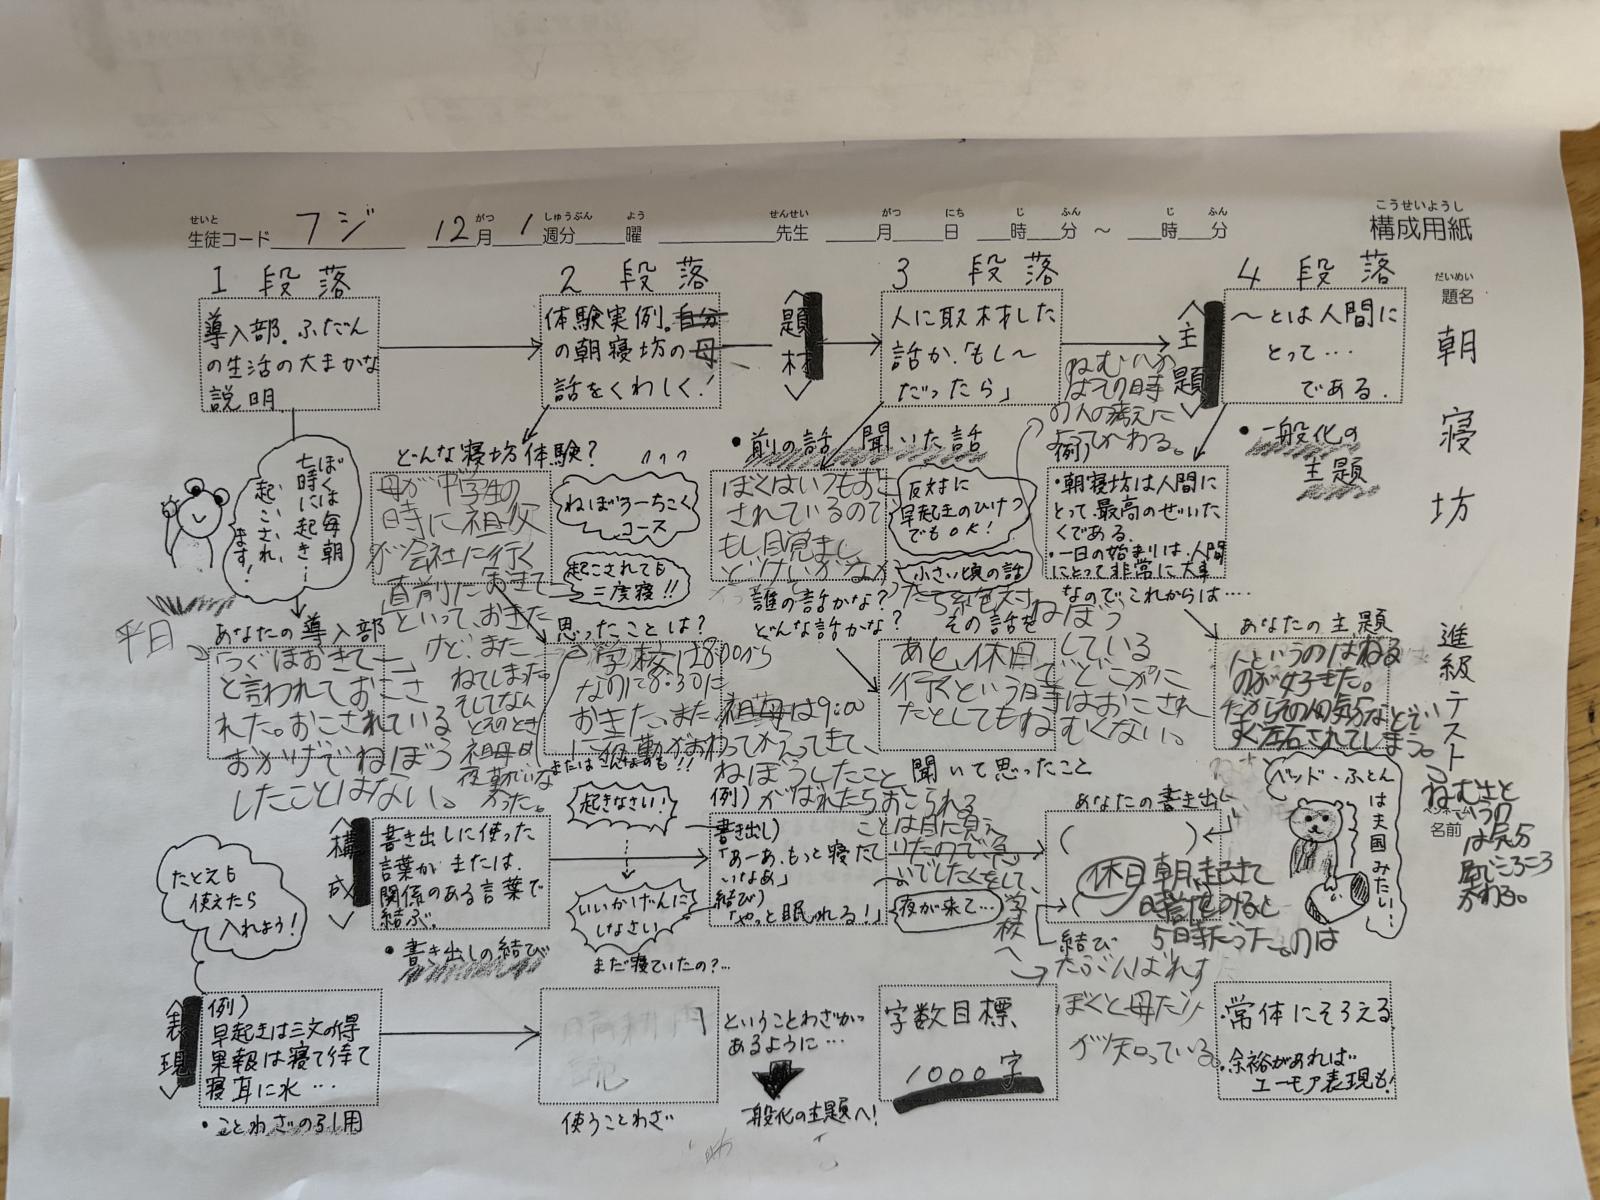 こうせいようし
構成用紙
せいと
生徒コード フジ
がつ しゅうぶん よう
12月 1週分 曜
せんせい
先生
がつ にち じ ふん じ ふん
月 日 時 分 ～ 時 分
だいめい
題名
朝寝坊
進級テスト
名前
1 段落
導入部。ふだん
の生活の大まかな
説明
2 段落
体験実例。自分
の朝寝坊の母
話をくわしく!
<題材>
3 段落
人に取材した
話か、「もし～
だったら」
<主題>
4 段落
～とは人間に
とって…
である.
・一般化の
主題
ぼくは毎朝
七時に起き…
起こされ
ます!
どんな寝坊体験?
母が中学生の
時に祖父
が会社に行く
直前におきて
といって、おきた
けど、また
ねてしまった
そしてなん
とそのとき
祖母は
夜勤でいな
かった。
ねぼうちこく
コース
起こされても
二度寝!!
・前の話 聞いた話
ぼくはいつもおこ
されているので
もし目覚まし
どけいがなか
ったら絶対ねぼう
している
反対に
早起きのひけつ
でもOK!
小さい頃の話
誰の話かな?
どんな話かな?
その話を
ねむいか
はその時
の人の考えに
よってかわる。
例)
・朝寝坊は人間に
とって最高のぜいた
くである.
・一日の始まりは、人間
にとって非常に大事
なので、これからは….
平日
あなたの導入部
と言われておこさ
れた。おこされている
おかげでねぼう
したことはない。
思ったことは?
学校は8:00から
なのに8:30に
おきた。また、祖母は9:00
に夜勤がおわってかえってきて、
ねぼうしたこと
がばれたらおこられる
ことは目に見え
またはこんなのも!!
あと、休日でどこかに
行くという時はおこされ
たとしてもねむくない。
聞いて思ったこと
あなたの主題
人というのはねる
のが好きだ。
だからその人の気分などで
左右されてしまう。
ねむさと
いうの
は気分
でころころ
かわる。
<構成>
書き出しに使った
言葉か または、
関係のある言葉で
結ぶ。
・書き出しの結び
起きなさい!
いいかげんに
しなさい
まだ寝ていたの?…
例)
書き出し)
「あーあ、もっと寝てた
いなあ」
結び)
「やっと眠れる!」
夜が来て…
あなたの書き出し
休日朝、起きて
時計をみると
5時だった。
結び
ぼくと母だけ
が知っている。
ベッド・ふとん
は天国みたい…
たとえも
使えたら
入れよう!
<表現>
例)
早起きは三文の得
果報は寝て待て
寝耳に水…
・ことわざの引用
晴耕雨
読
使うことわざ
ということわざが
あるように…
一般化の主題へ!
字数目標
1000字
・常体にそろえる
・余裕があれば
ユーモア表現も!